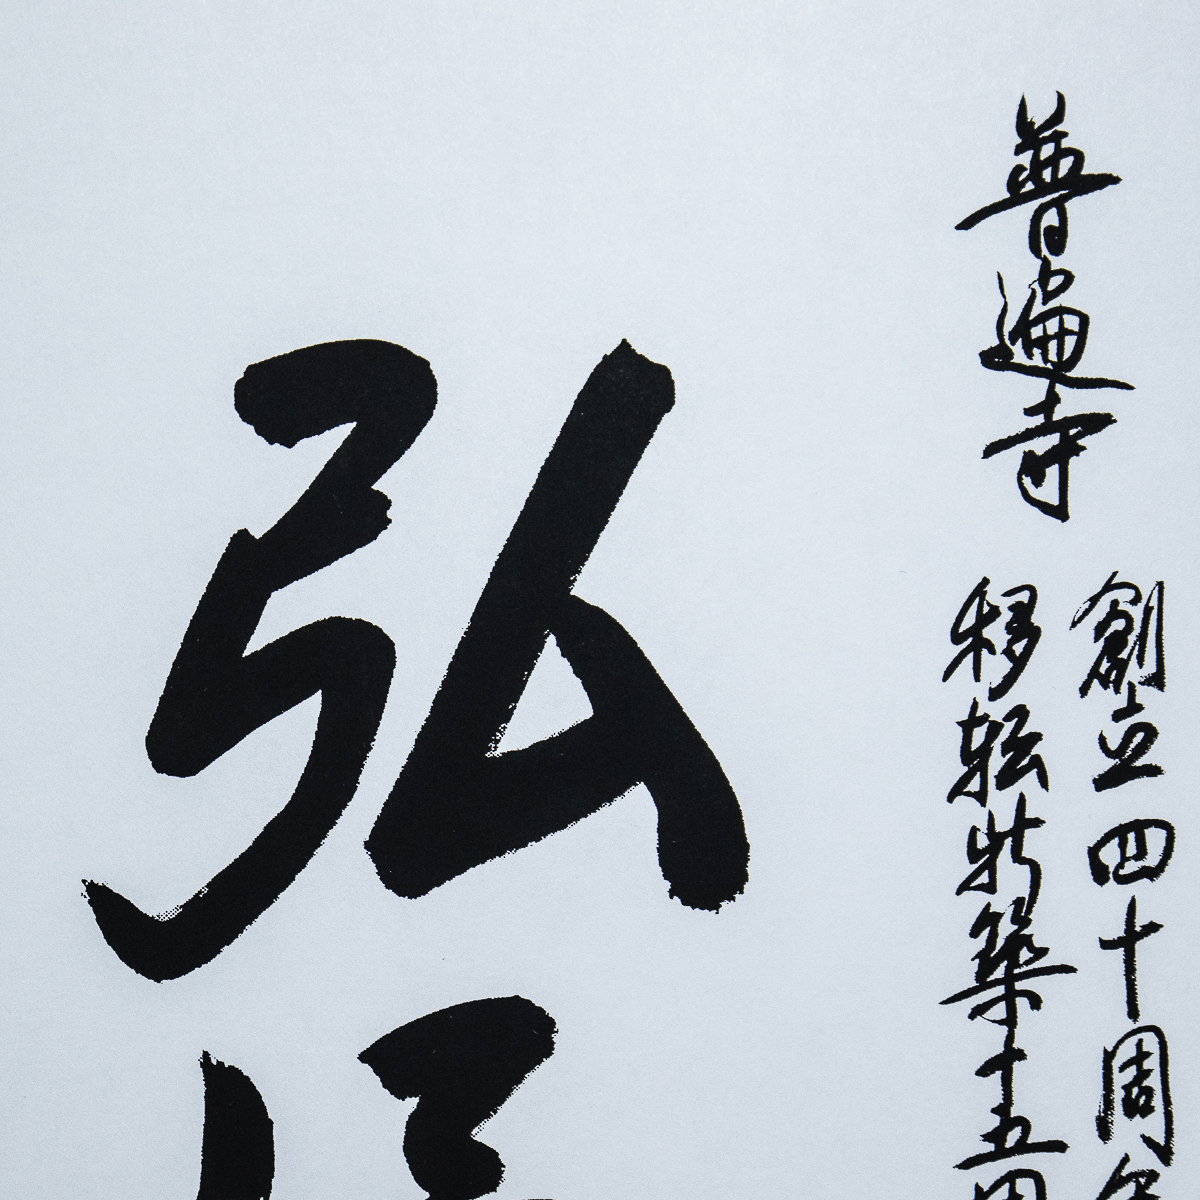 普遍寺
創立四十周年
移転新築十五周
弘